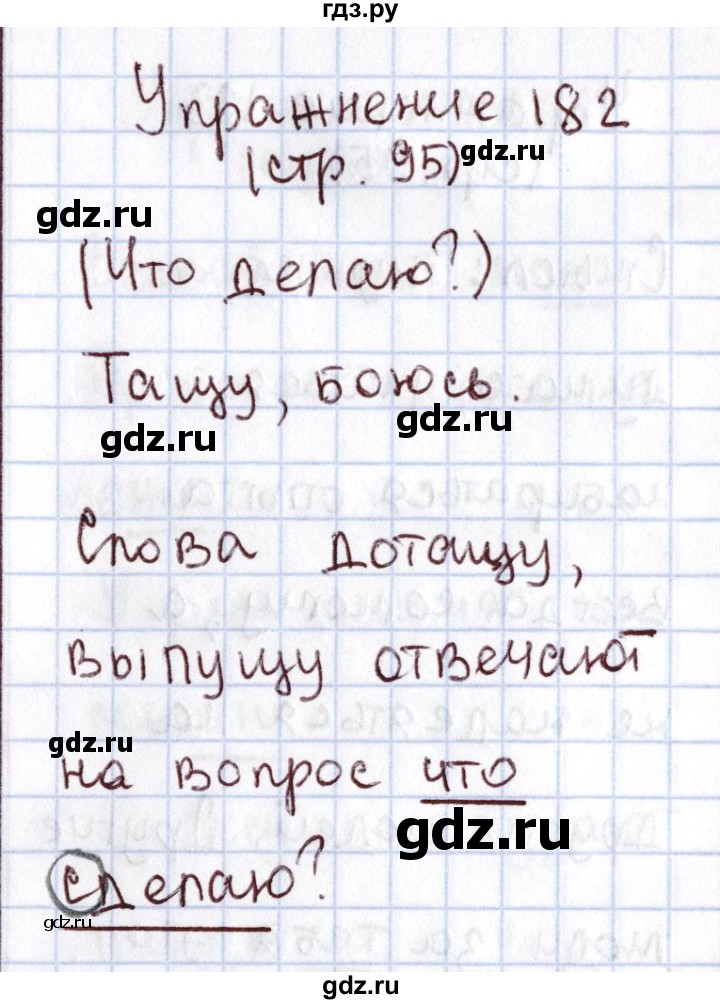 гдз.ру
Упражнение 182
(стр. 95)
gdz.ru
gdz.ru
(Что делаю?)
Тащу, боюсь.
gdz.ru
gdz.ru
Слова дотащу,
выпущу отвечают
gdz.ru
на вопрос что
gdz.ru
сделаю?
gdz.ru
gdz.ru